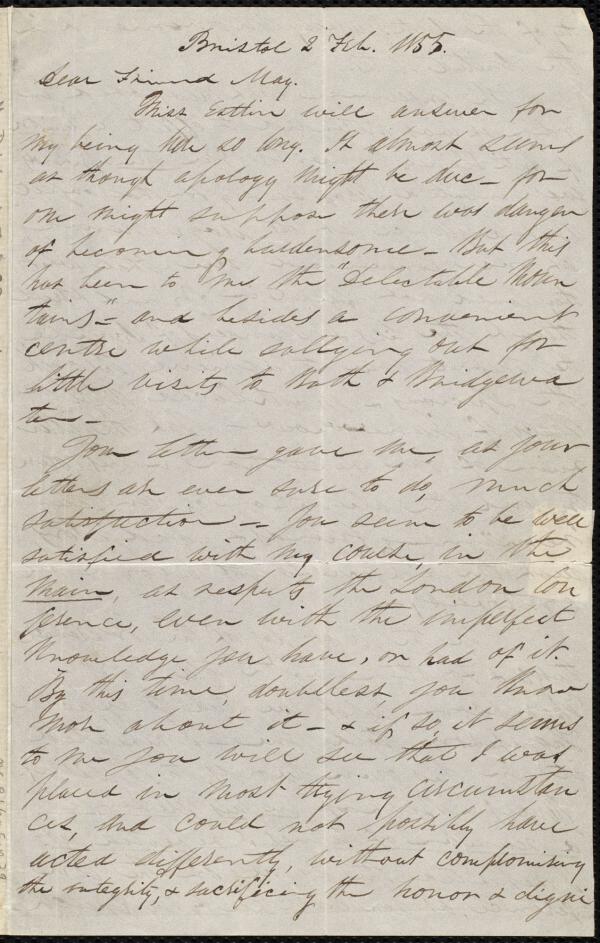 Bristol 2 Feb. 1855.
Dear Friend May.
Miss Estlin will answer for
my being here so long. It almost seems
as though apology might be due - for
one might suppose there was danger
of becoming burdensome - But this
has been to me the "Delectable Moun
tains" - and besides a convenient
centre while sallying out for
little visits to Bath & Bridgewa
ter -
Your letter gave me, as your
letters are ever sure to do, much
satisfaction - You seem to be well
satisfied with my course, in the
main, as respects the London Con
ference, even with the imperfect
knowledge you have, or had of it.
By this time, doubtless, you know
more about it - & if so, it seems
to me you will see that I was
placed in most trying circumstan
ces, and could not possibly have
acted differently, without compromising
the integrity, & sacrificing the honor & digni